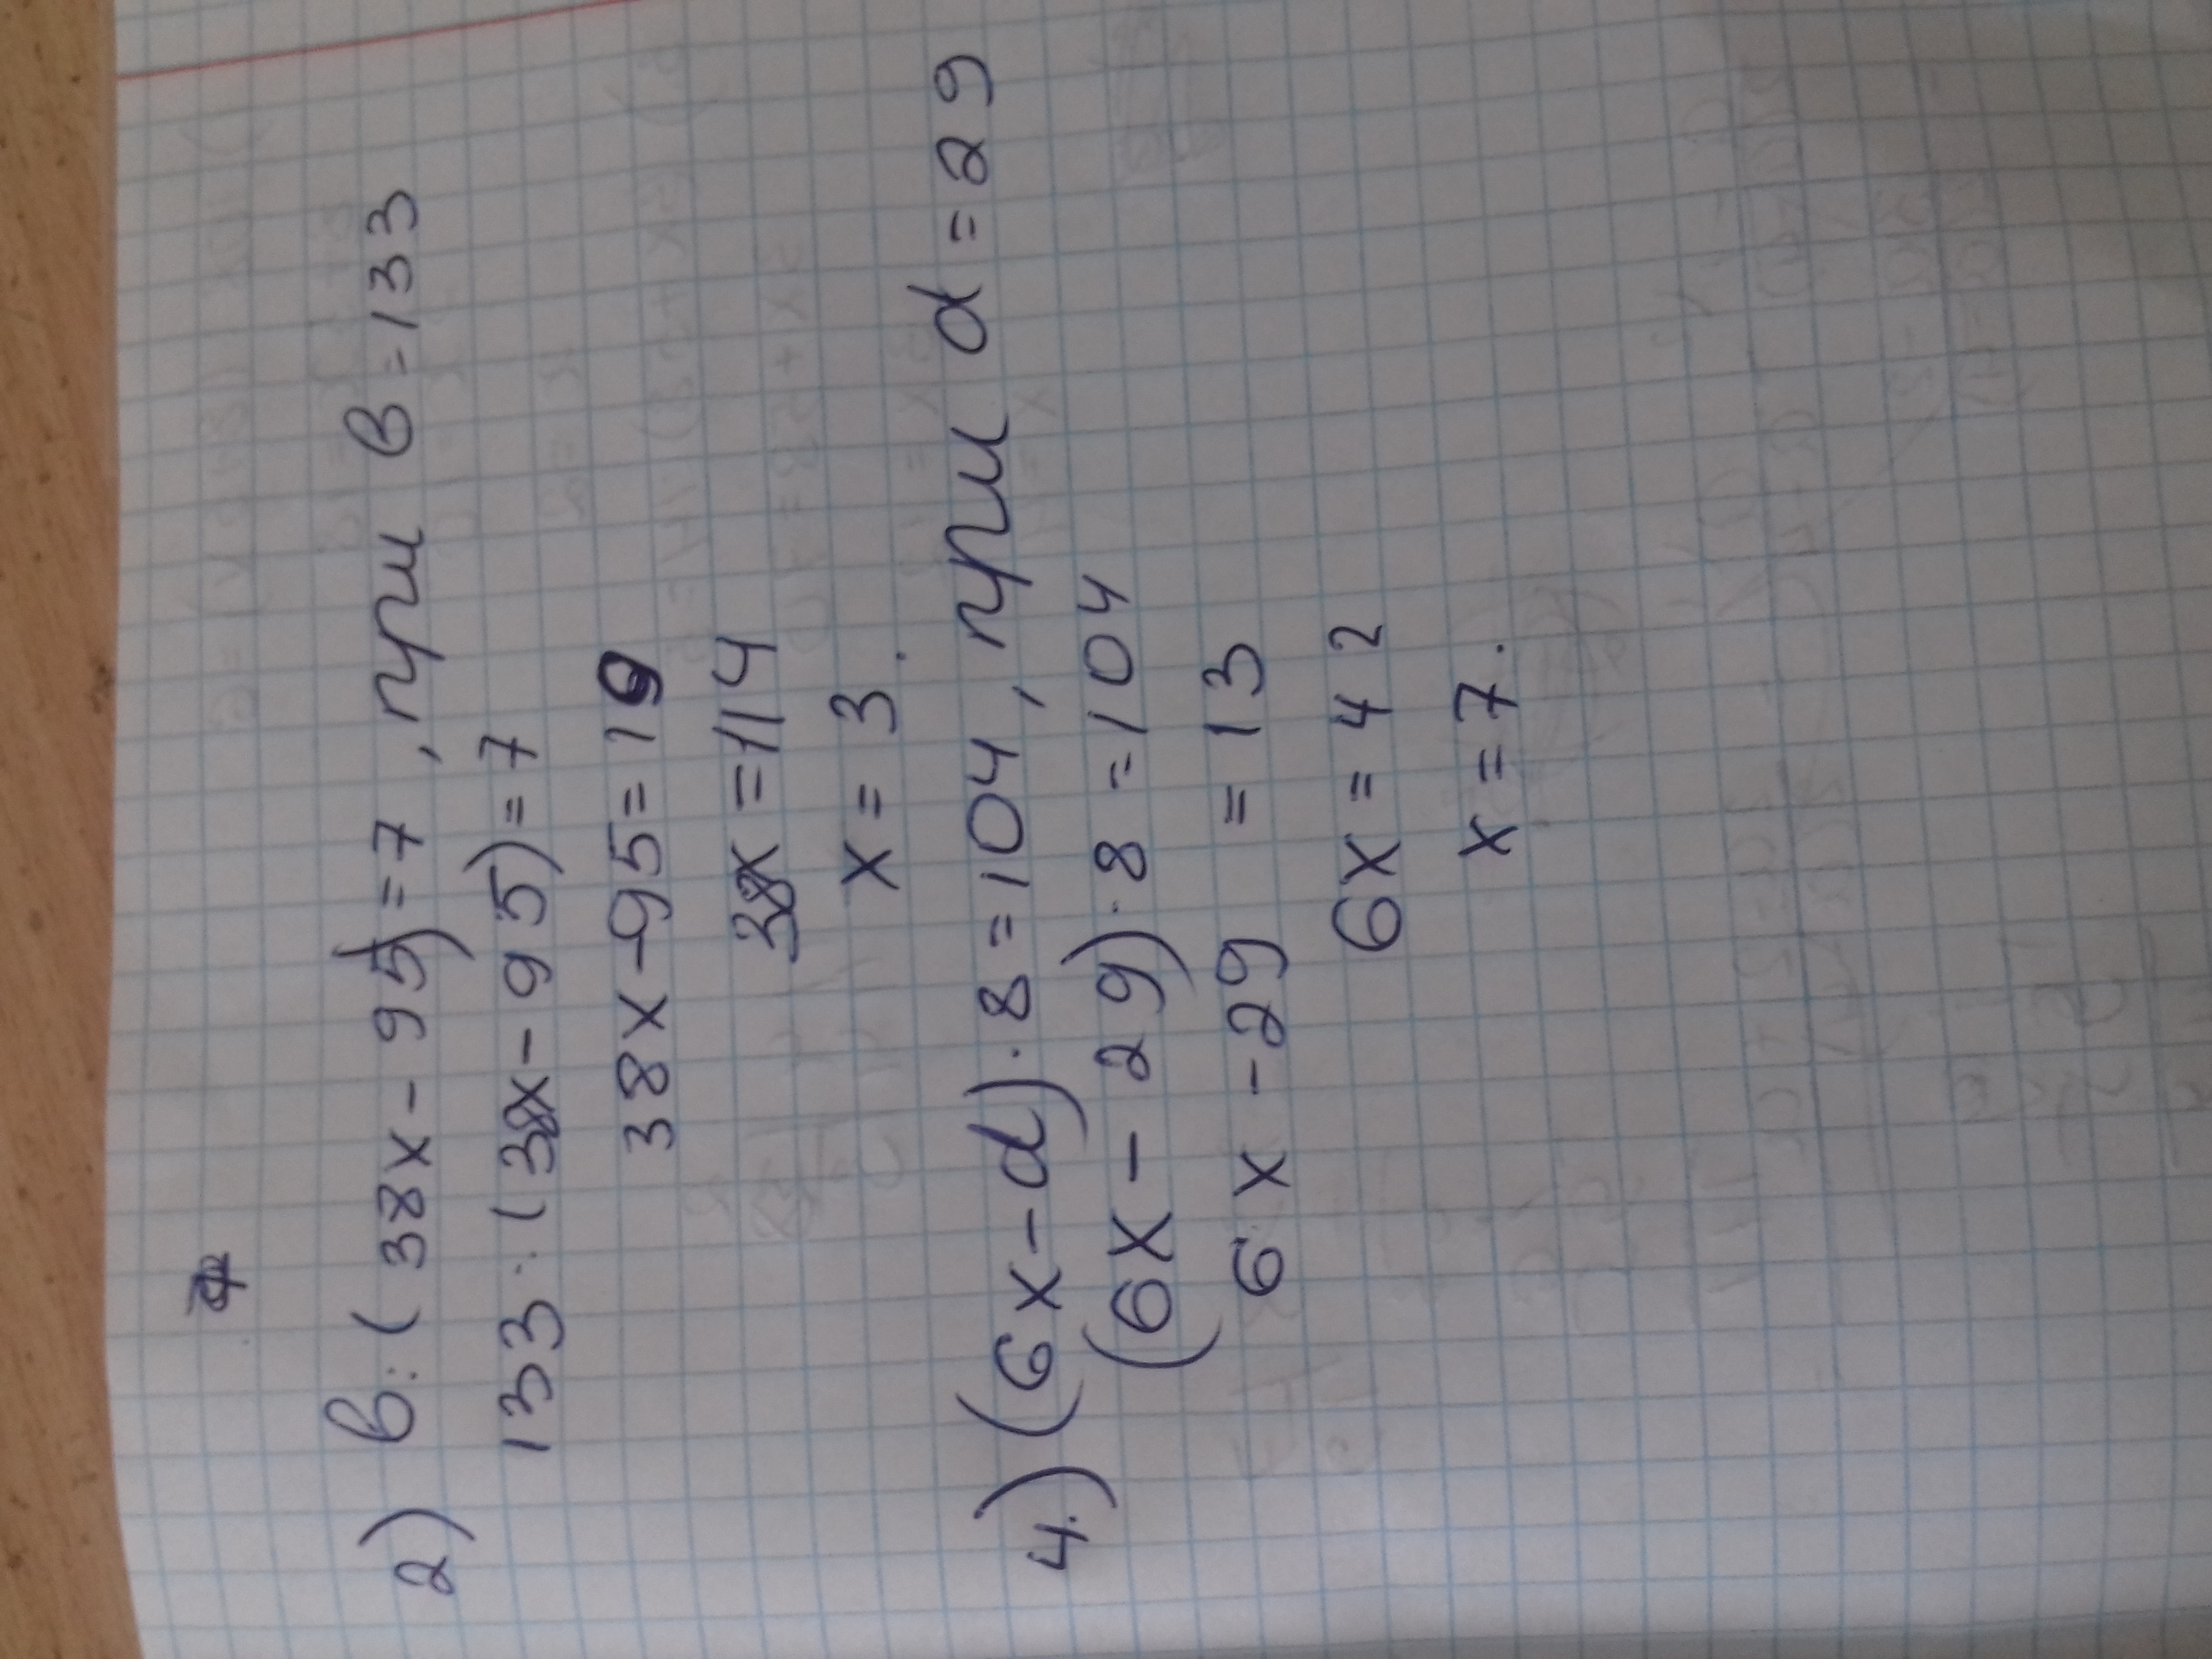 2) в : (38x - 95) = 7, при в = 133
133 : (38x - 95) = 7
38x - 95 = 19
38x = 114
x = 3.
4.) (6x - d) · 8 = 104, при d = 29
(6x - 29) · 8 = 104
6x - 29 = 13
6x = 42
x = 7.